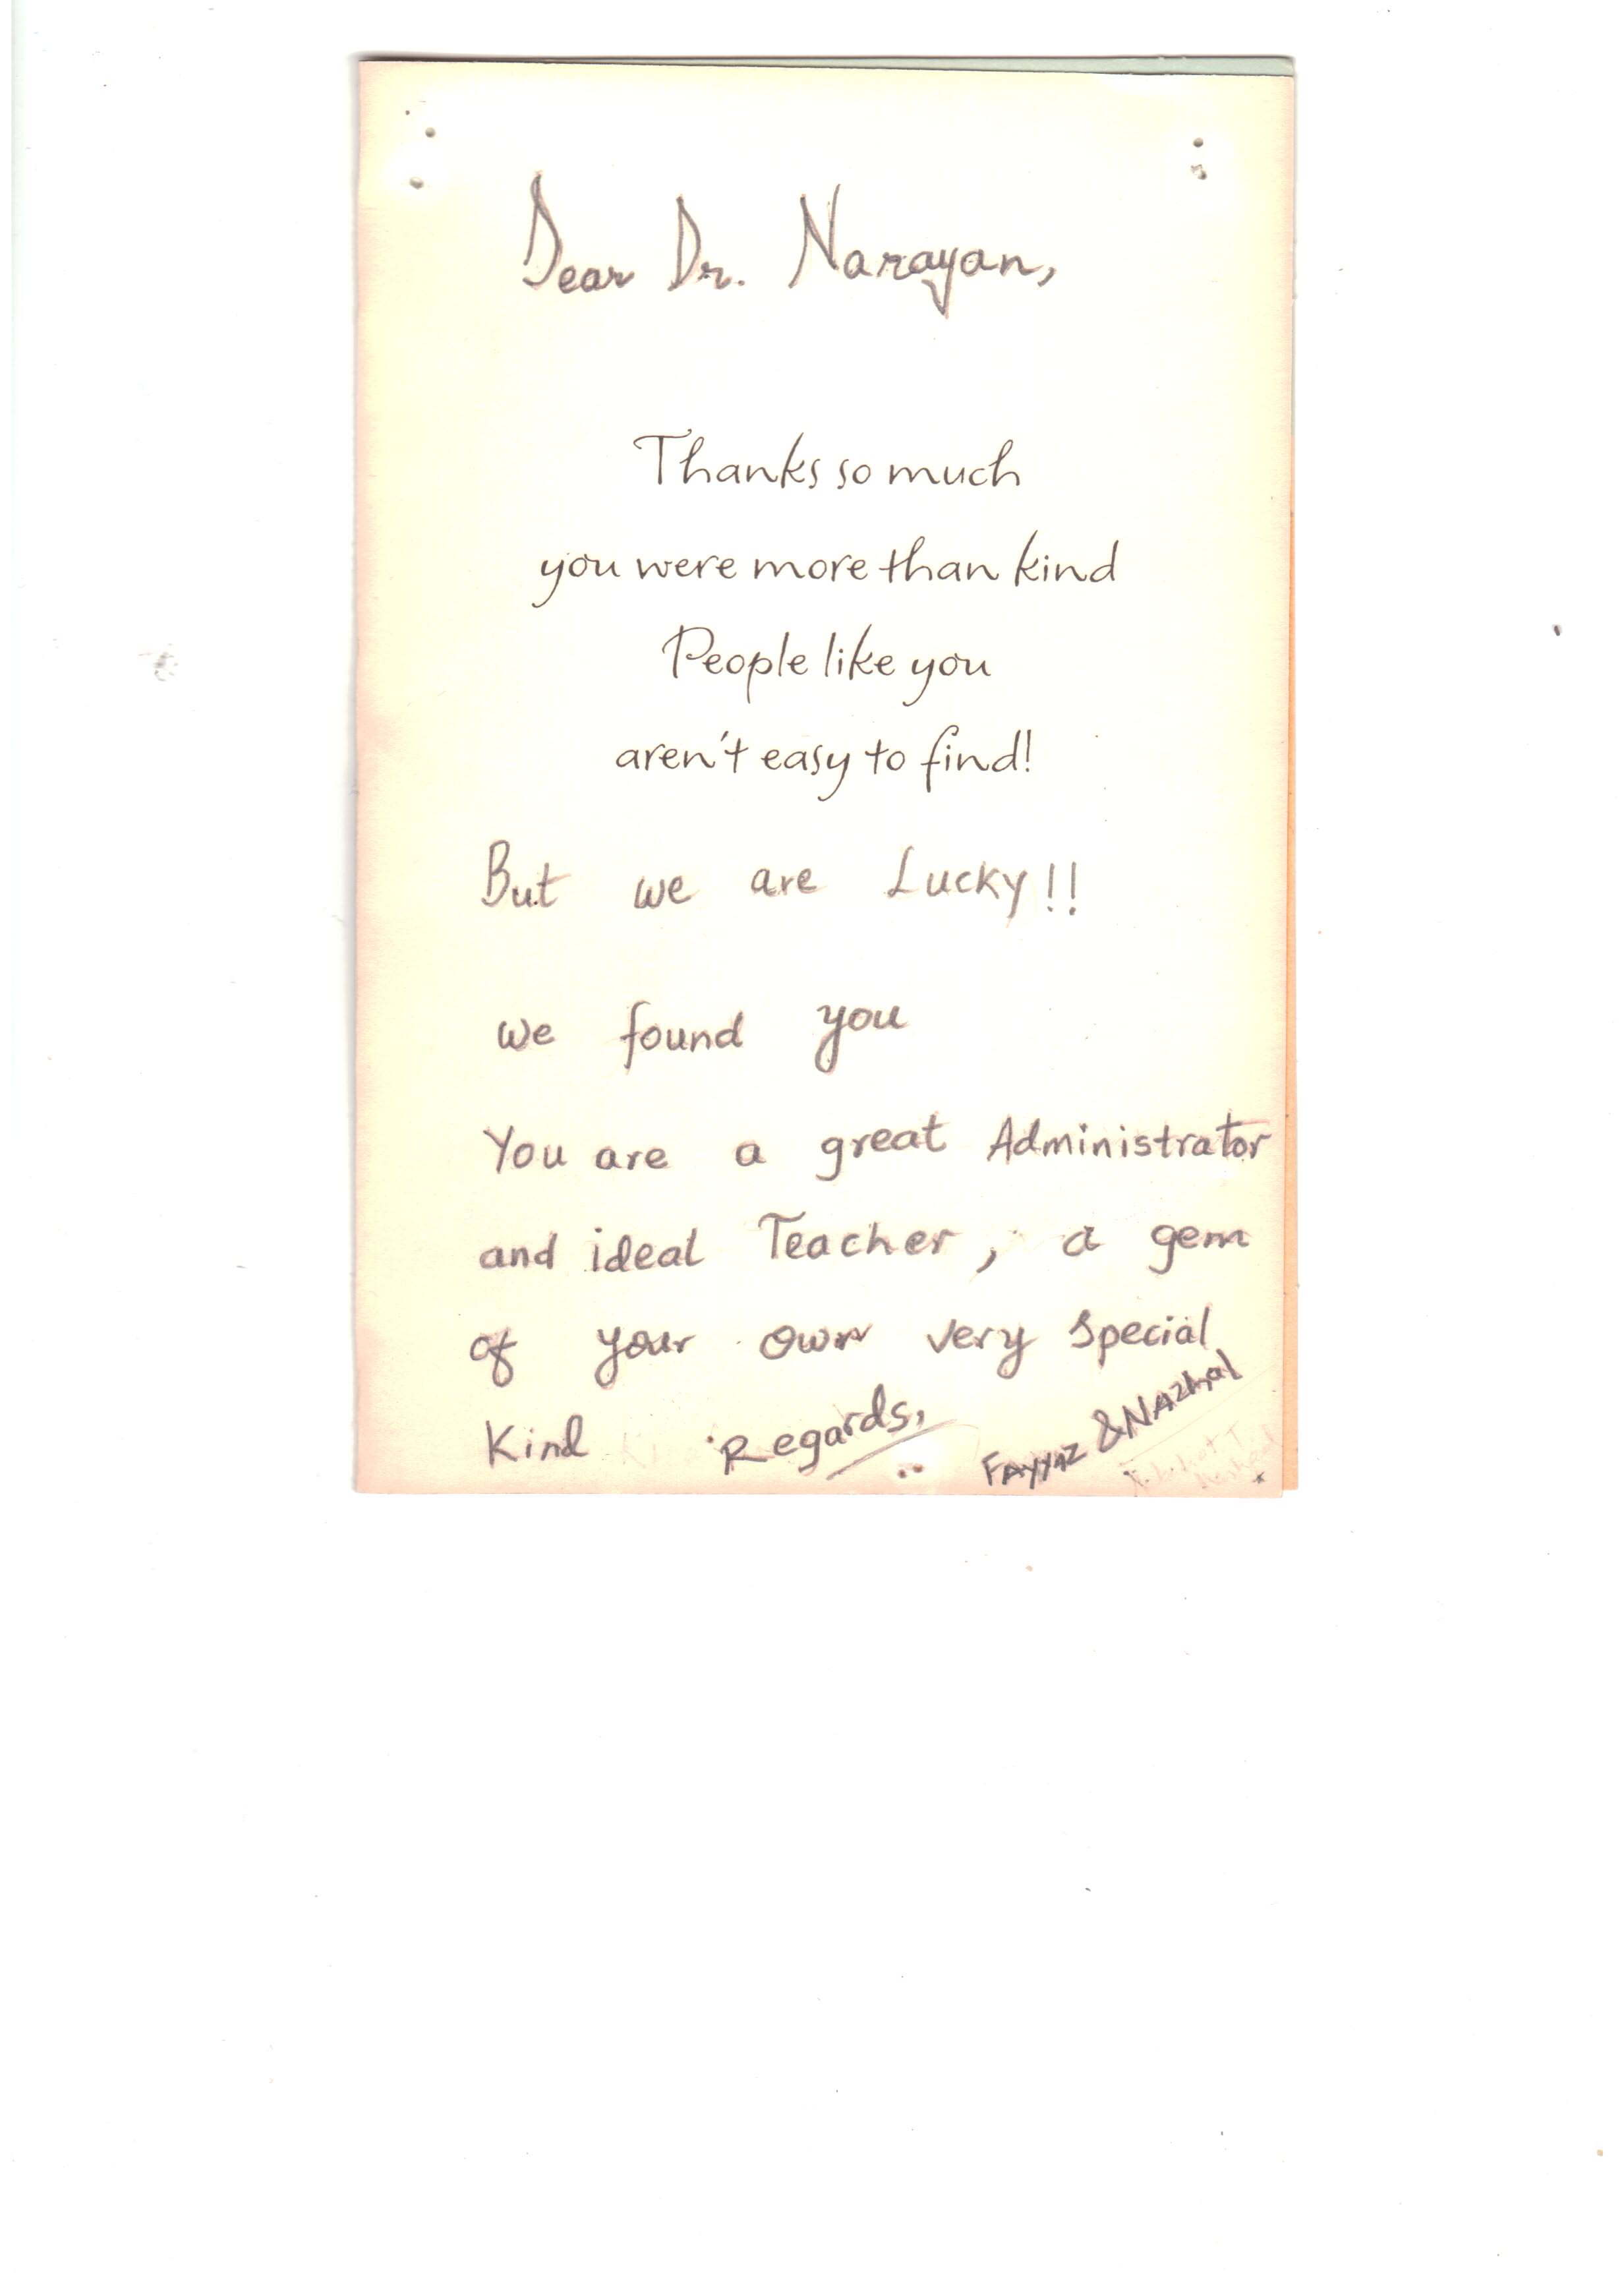 Dear Dr. Narayan,
Thanks so much
you were more than kind
People like you
aren't easy to find!
But we are Lucky!!
we found you
You are a great Administrator
and ideal Teacher, a gem
of your own very special
Kind Regards,
FAYYAZ & NAZHAL